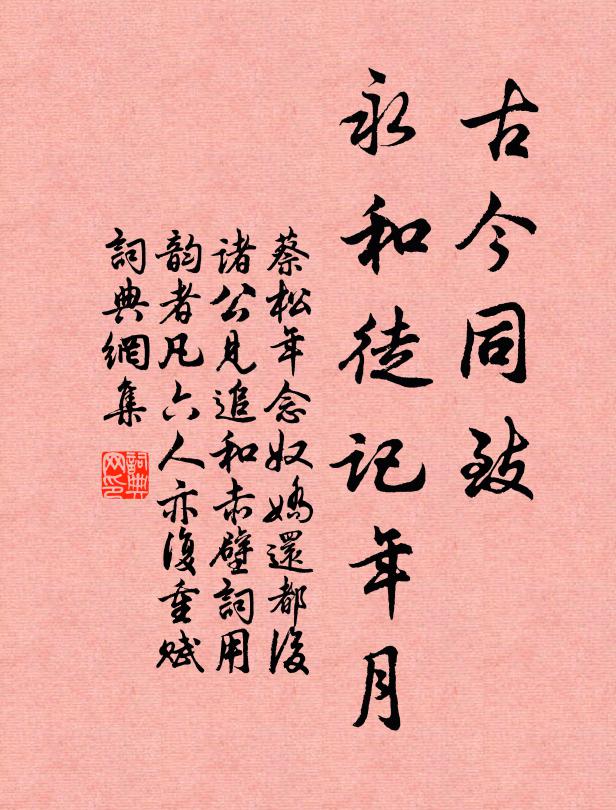 古今同致
永和徒记年月
蔡松年念奴嬌還都後
诸公見追和赤壁詞用
韵者凡六人亦復重赋
詞典網集
詞典网印